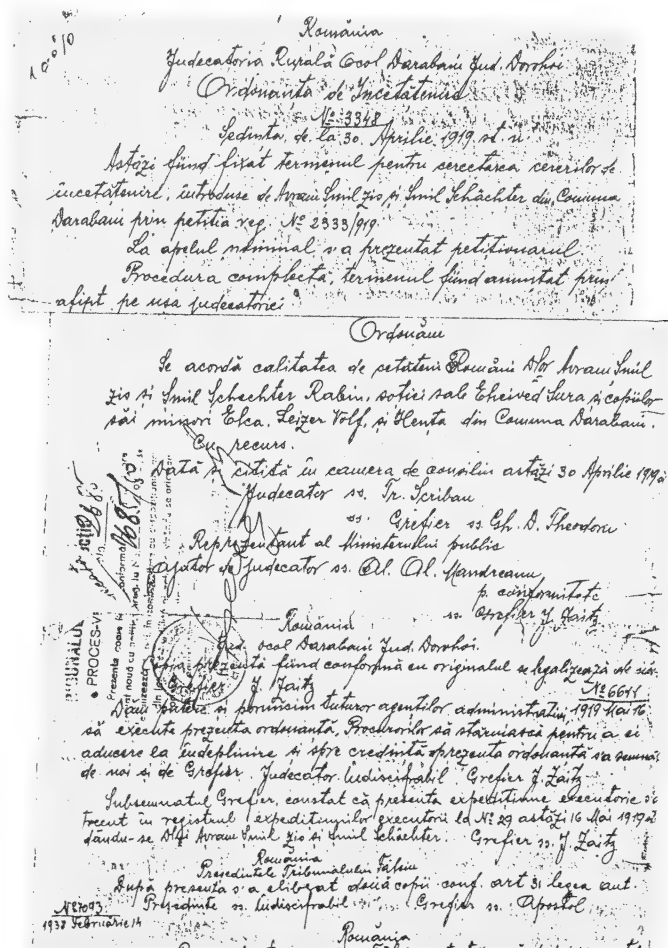 România
Judecatoria Rurală Ocol Darabani Jud. Dorohoi
Ordonanța de Incetătenire
№ 3348
Sedinta de la 30. Aprilie 1919 st. n
Astăzi fiind fixat termenul pentru cercetarea cererilor de
incetatenire, introduse de Avram Smil zis si Smil Schächter din Comuna
Darabani prin petitia reg. № 2333/919.
La apelul nominal s'a prezentat petitionarul
Procedura complectă, termenul fiind anuntat prin
afipt pe usa judecatoriei
Ordonăm
Se acordă calitatea de cetăteni Români Dlor Avram Smil
zis si Smil Schechter Rabin, sotiei sale Sura si copiilor
săi minori Elca, Leizer Volf, si Henta din Comuna Darabani.
Cu recurs.
Dată si citită in camera de consiliu astăzi 30 Aprilie 1919
Judecator ss. Tr. Scriban
ss. Grefier ss. Gh. D. Theodoru
Reprezentant al Ministerului public
ajutor de judecator ss. Al. Mandreanu
p. conformitate
ss. Grefier J. Zaitz
România
Jud. ocol Darabani Jud. Dorohoi.
Copia prezentă fiind conformă cu originalul se legalizează de
Grefier J. Zaitz
№ 6611
1919 Mai 16
Dam putere si poruncim tuturor agentilor administrativi,
să execute prezenta ordonantă, Procurorilor să stăruiască pentru a ei
aducere la indeplinire si spre credintă prezenta ordonantă s'a semnat
de noi si de Grefier. Judecător Indiscifrabil Grefier J. Zaitz
Subsemnatul Grefier, constat că presenta expeditiune executorie s'a
trecut in registrul expeditiunilor executorii la № 29 astăzi 16 Mai 1919
dându-se Dlui Avram Smil zis si Smil Schächter. Grefier ss. J. Zaitz
România
Presedintele Tribunalului
După presenta s'a eliberat două copii conf. art 31 legea aut.
Presedinte ss. Indiscifrabil Grefier ss. Apostol
№ 7093
1938 Februarie 14
România
PROCES-V
Prezenta